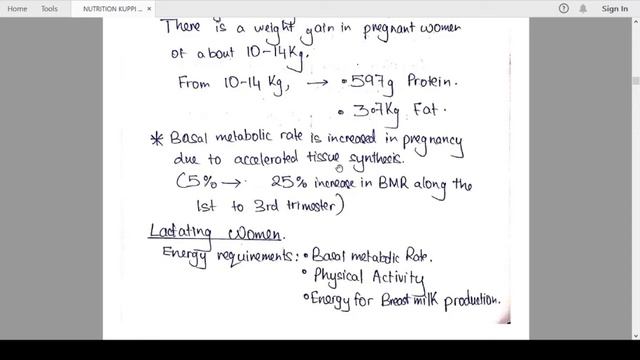 Home
Tools
NUTRITION KUPPI ...
Sign In
There is a weight gain in pregnant women
of about 10-14Kg.
From 10-14 Kg, → • 597g Protein.
• 3.7Kg Fat.
* Basal metabolic rate is increased in pregnancy
due to accelerated tissue synthesis.
(5% → 25% increase in BMR along the
1st to 3rd trimester)
Lactating women.
Energy requirements: • Basal metabolic Rate.
• Physical Activity
• Energy for Breast milk production.